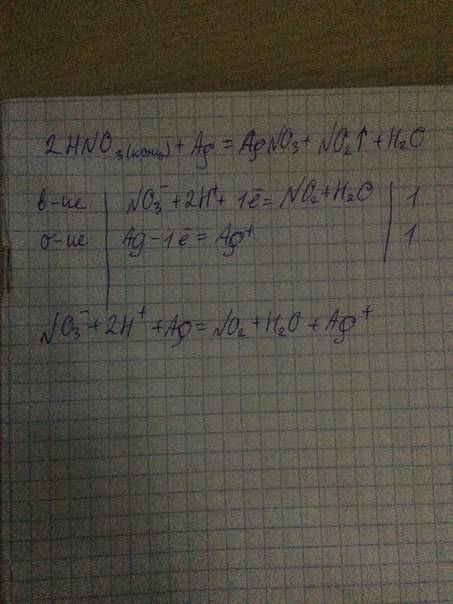 2HNO₃(конц) + Ag = AgNO₃ + NO₂↑ + H₂O
в-ие | NO₃⁻ + 2H⁺ + 1ē = NO₂ + H₂O | 1
о-ие | Ag - 1ē = Ag⁺ | 1
NO₃⁻ + 2H⁺ + Ag = NO₂ + H₂O + Ag⁺